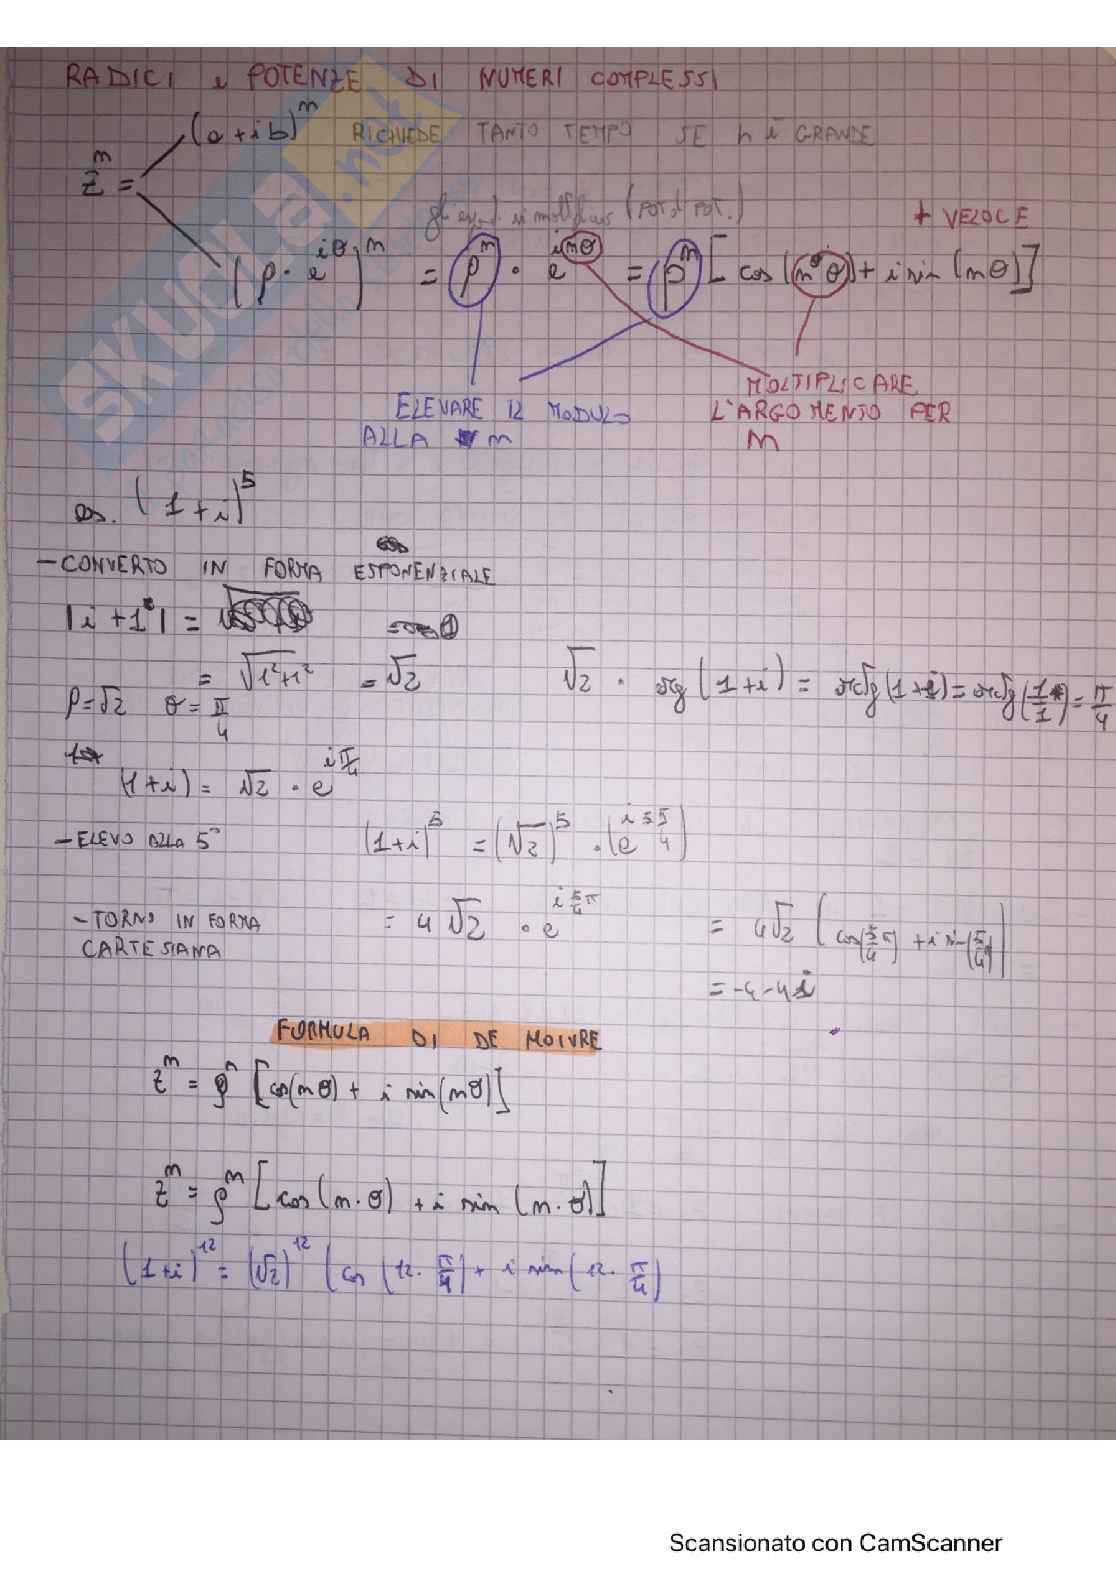 RADICI e POTENZE DI NUMERI COMPLESSI
(a+ib)^n RICHIEDE TANTO TEMPO SE n è GRANDE
z^n =
gli espon. si moltiplicano (POT. di POT.)
+ VELOCE
(ρ · e^{iθ})^n = ρ^n · e^{inθ} = ρ^n [cos(n·θ) + i sin(nθ)]
ELEVARE IL MODULO
ALLA n
MOLTIPLICARE
L'ARGOMENTO PER
n
es. (1+i)^5
- CONVERTO IN FORMA ESPONENZIALE
|i+1| =
= √(1²+1²) = √2
√2 · arg(1+i) = arctg(1+i) = arctg(1/1) = π/4
ρ=√2 θ=π/4
(1+i) = √2 · e^{iπ/4}
- ELEVO ALLA 5ª (1+i)^5 = (√2)^5 · (e^{i5π/4})
- TORNO IN FORMA
CARTESIANA
= 4√2 · e^{i 5/4 π} = 4√2 [cos(5/4 π) + i sin(5/4 π)]
= -4-4i
FORMULA DI DE MOIVRE
z^n = ρ^n [cos(nθ) + i sin(nθ)]
z^n = ρ^n [cos(n·θ) + i sin(n·θ)]
(1+i)^12 = (√2)^12 (cos(12·π/4) + i sin(12·π/4)
SKUOLA.net
Scansionato con CamScanner